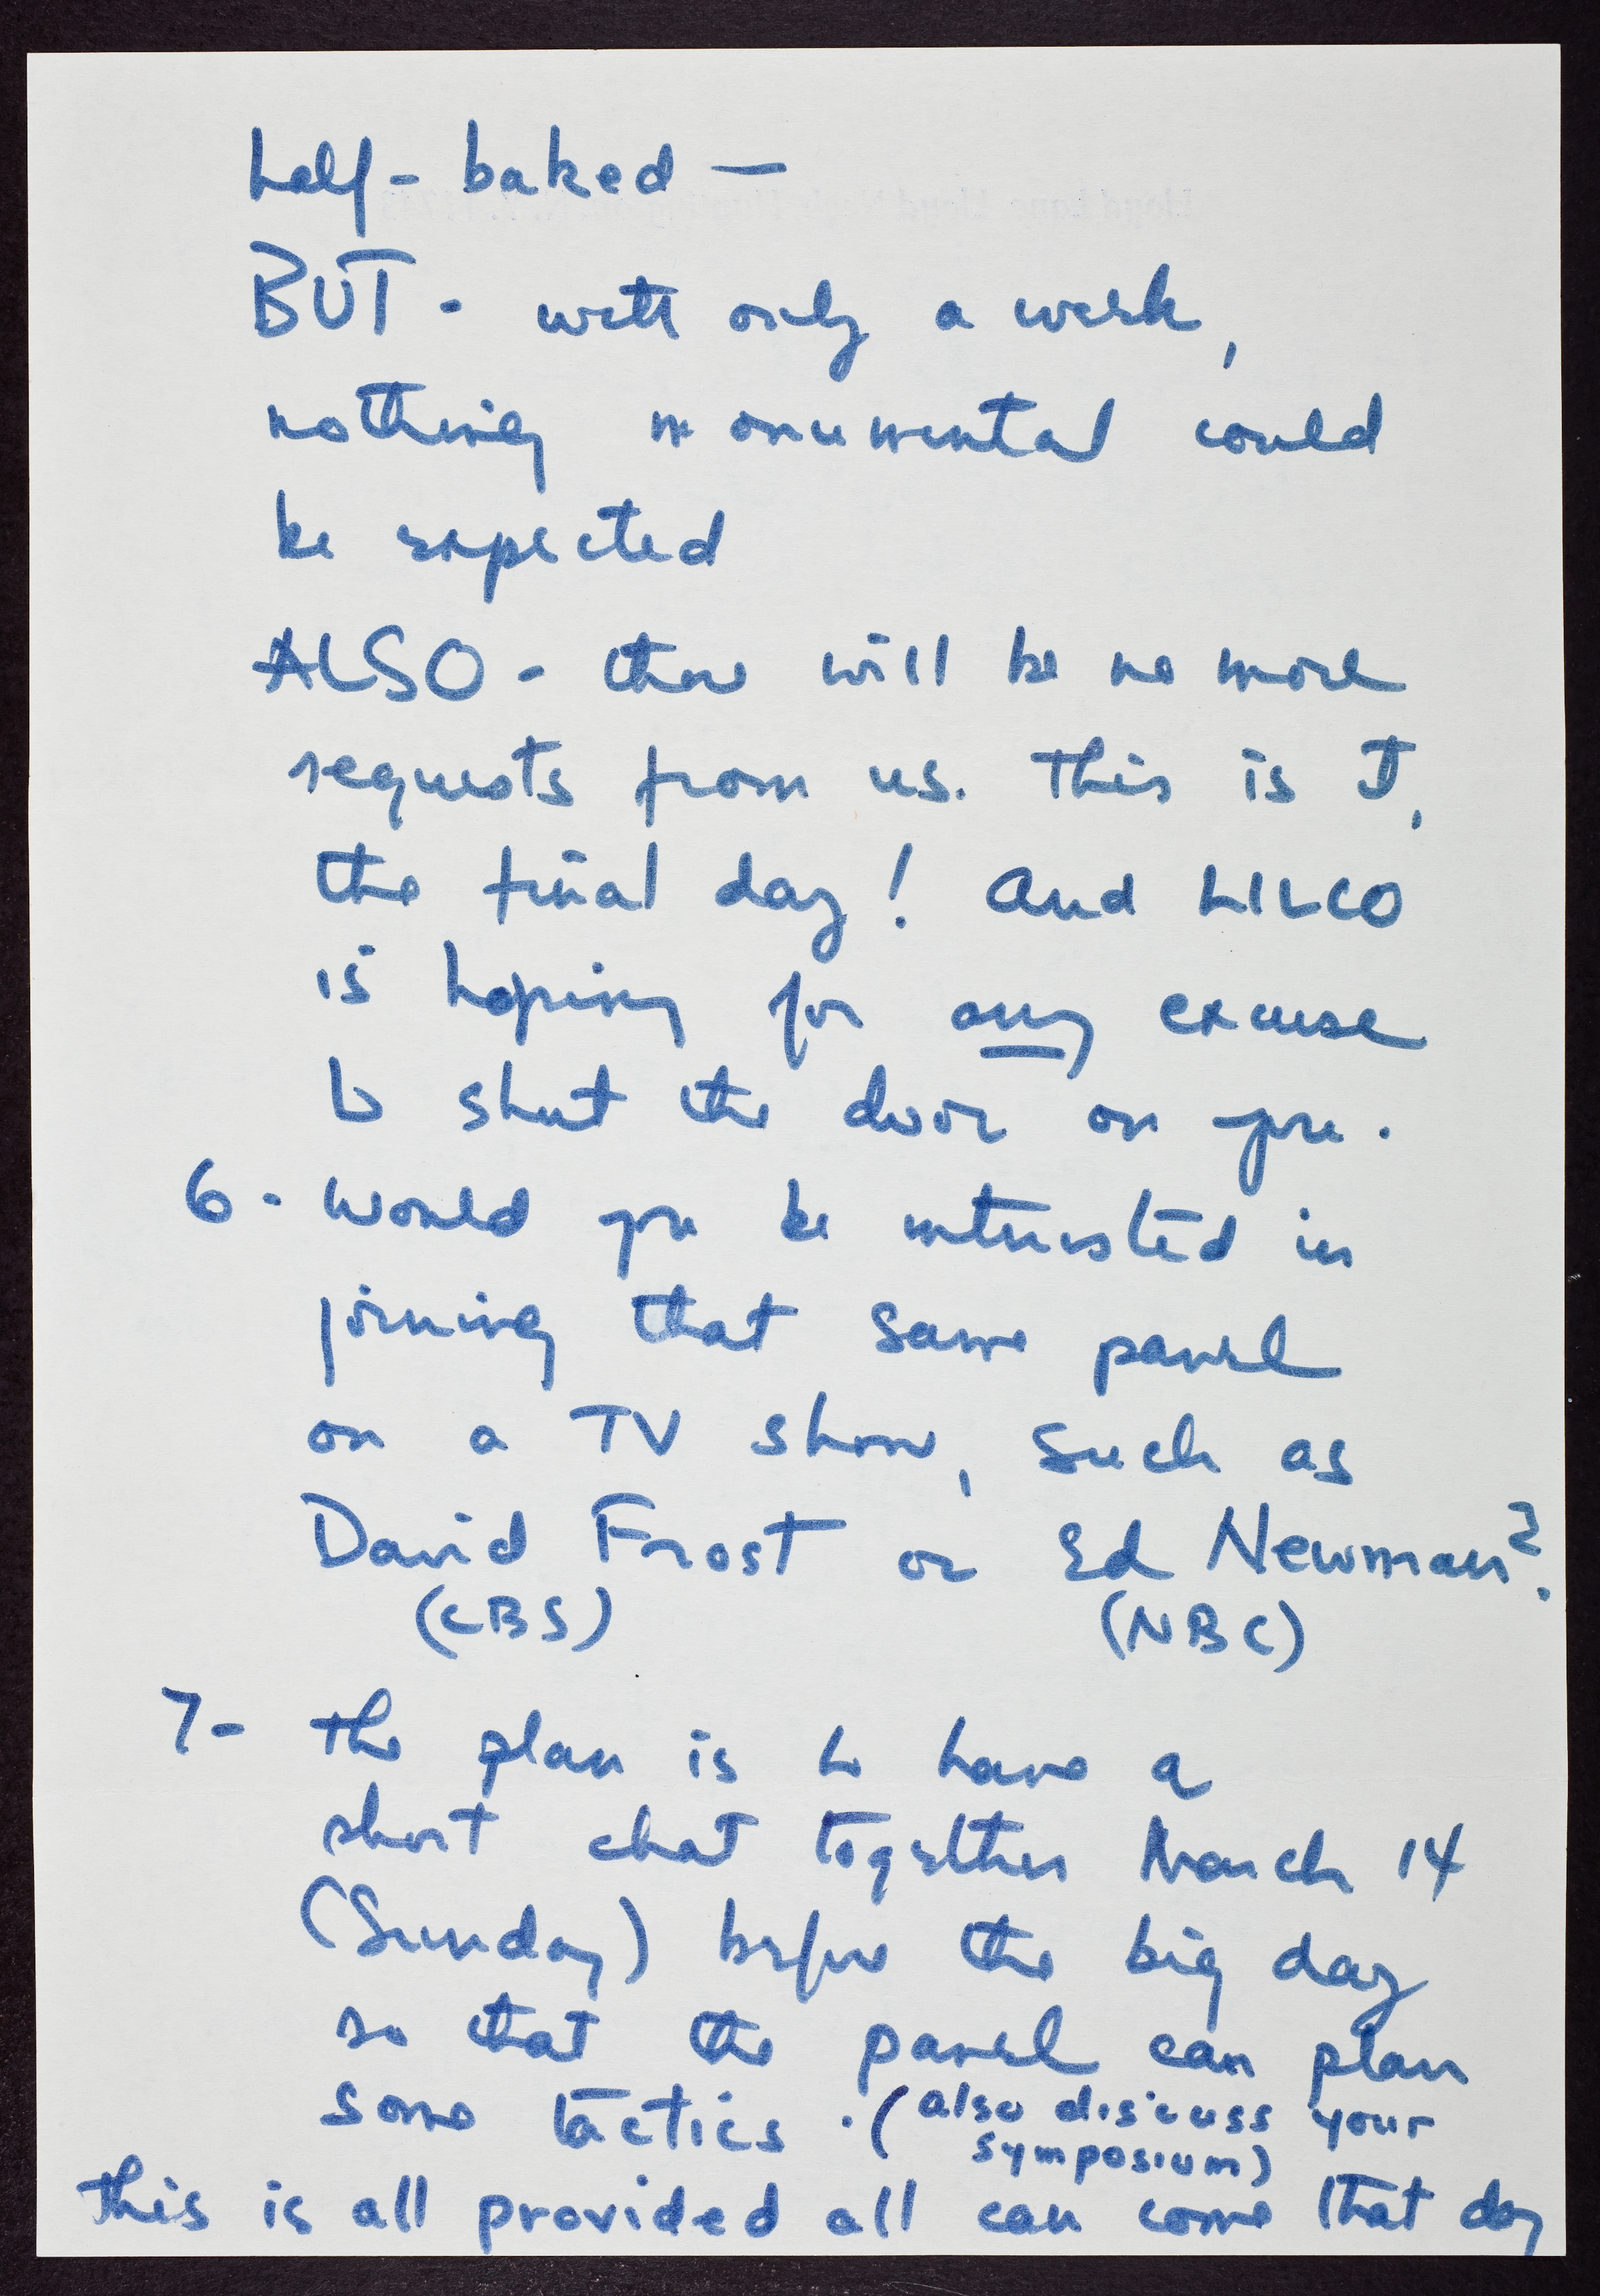 half-baked —
BUT - with only a week,
nothing monumental could
be expected
ALSO - there will be no more
requests from us. This is it,
the final day! And LILCO
is hoping for any excuse
to shut the door on you.
6 - Would you be interested in
joining that same panel
on a TV show, such as
David Frost or Ed Newman?
(CBS) (NBC)
7 - The plan is to have a
short chat together March 14
(Sunday) before the big day
so that the panel can plan
some tactics. (also discuss your
symposium)
this is all provided all can come that day